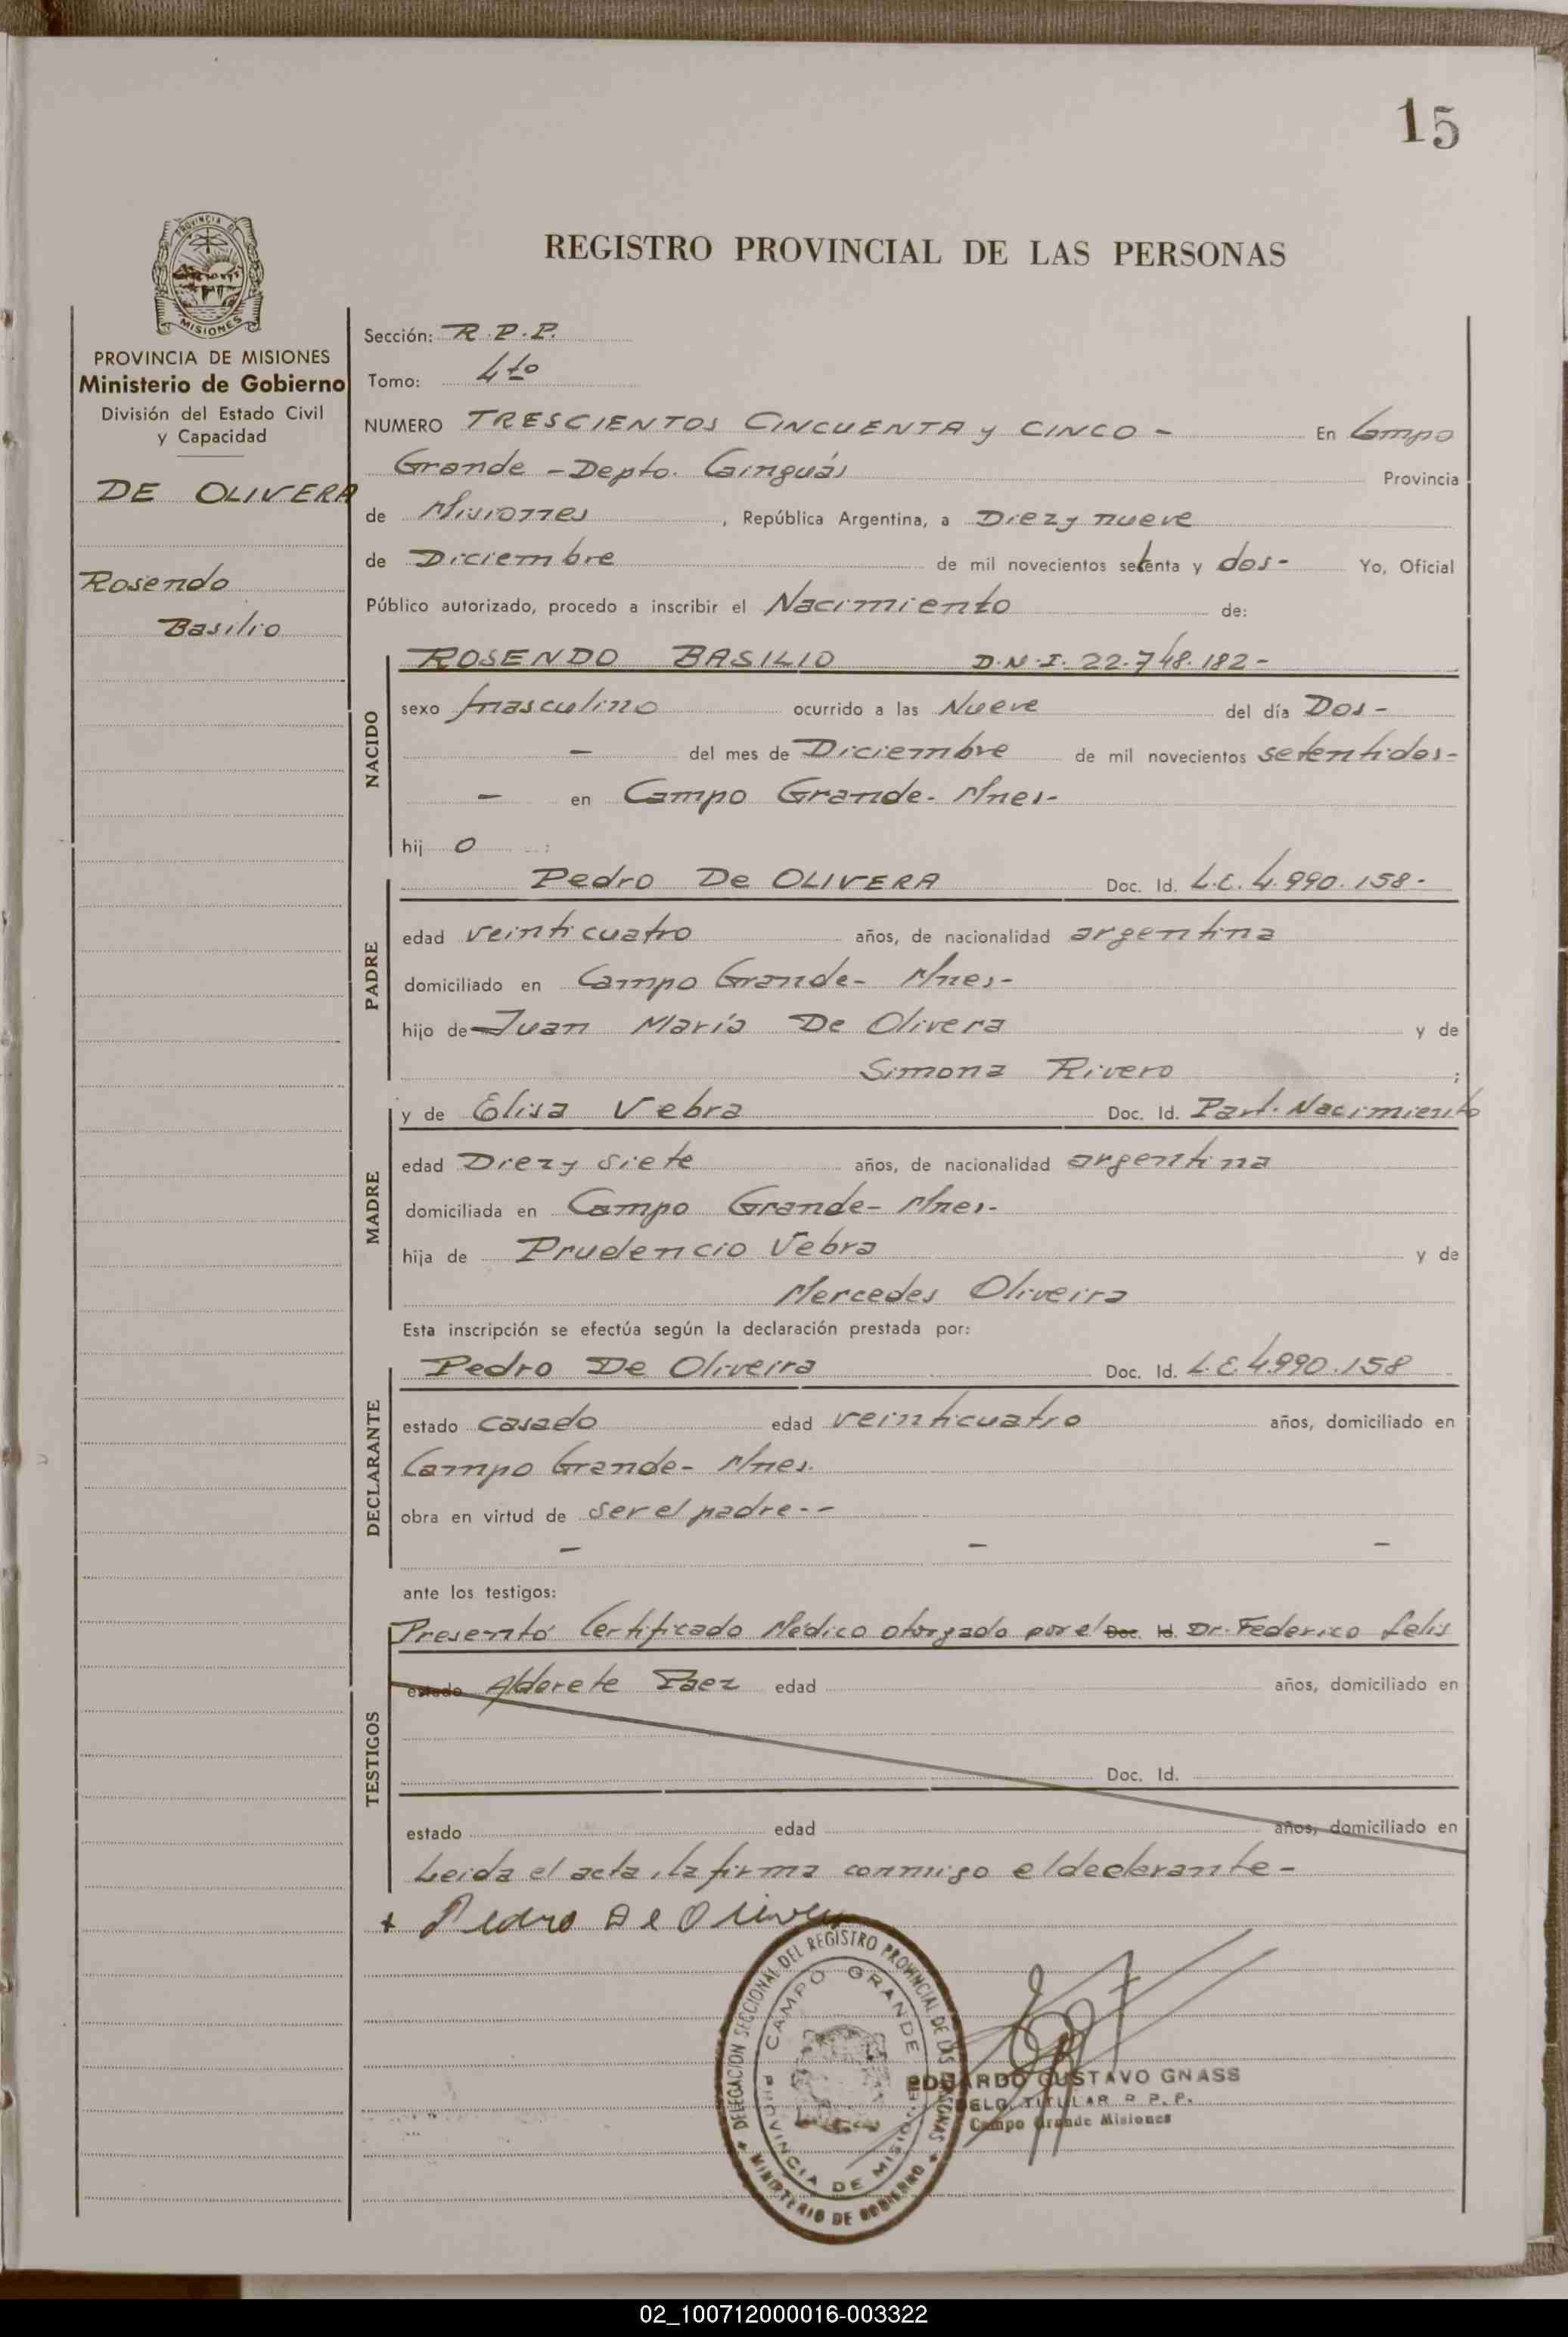 15
PROVINCIA DE
MISIONES
PROVINCIA DE MISIONES
Ministerio de Gobierno
División del Estado Civil
y Capacidad
DE OLIVERA
Rosendo
Basilio
REGISTRO PROVINCIAL DE LAS PERSONAS
Sección: R.P.P.
Tomo: 4to
NUMERO TRESCIENTOS CINCUENTA y CINCO - En Campo
Grande - Depto. Cainguás Provincia
de Misiones, República Argentina, a Diez y nueve
de Diciembre de mil novecientos setenta y dos- Yo, Oficial
Público autorizado, procedo a inscribir el Nacimiento de:
NACIDO
ROSENDO BASILIO D.N.I. 22.748.182-
sexo masculino ocurrido a las Nueve del día Dos-
- del mes de Diciembre de mil novecientos setentidos-
- en Campo Grande- Mnes-
hij o :
PADRE
Pedro De OLIVERA Doc. Id. L.E. 4.990.158-
edad veinticuatro años, de nacionalidad argentina
domiciliado en Campo Grande- Mnes-
hijo de Juan María De Olivera y de
Simona Rivero ;
MADRE
y de Elisa Vebra Doc. Id. Part. Nacimiento
edad Diez y siete años, de nacionalidad argentina
domiciliada en Campo Grande- Mnes-
hija de Prudencio Vebra y de
Mercedes Oliveira
Esta inscripción se efectúa según la declaración prestada por:
DECLARANTE
Pedro De Oliveira Doc. Id. L.E. 4.990.158
estado casado edad veinticuatro años, domiciliado en
Campo Grande- Mnes.
obra en virtud de ser el padre--
- - -
ante los testigos:
TESTIGOS
Presentó Certificado Médico otorgado por el Doc. Id. Dr. Federico Lelis
estado Alderete Paez edad años, domiciliado en
Doc. Id.
estado edad años, domiciliado en
Leida el acta, la firma conmigo el declarante-
+ Pedro De Olivera
DELEGACION SECCIONAL DEL REGISTRO PROVINCIAL DE LAS PERSONAS
MINISTERIO DE GOBIERNO
CAMPO GRANDE
PROVINCIA DE MISIONES
EDUARDO GUSTAVO GNASS
DELG. TITULAR R.P.P.
Campo Grande Misiones
02_100712000016-003322